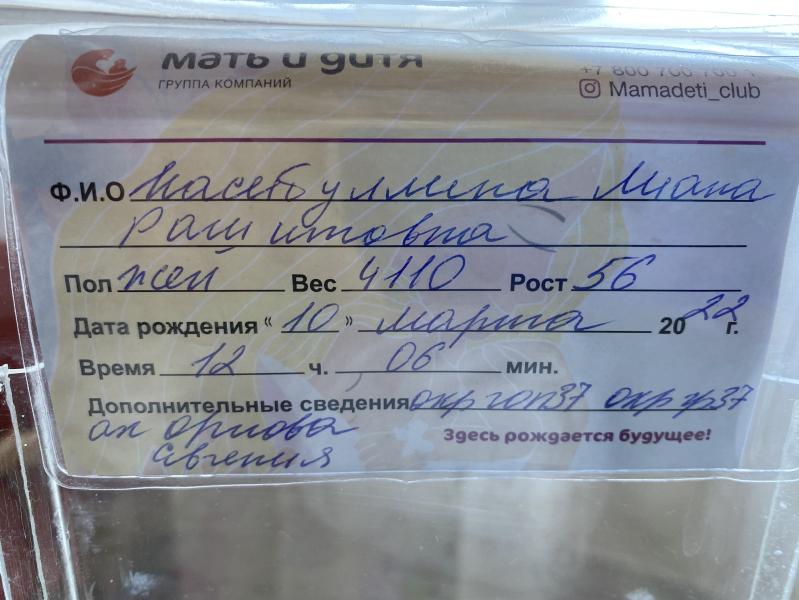 мать и дитя
ГРУППА КОМПАНИЙ
Mamadeti_club
Ф.И.О Насетбуллина Миана
Рашитовна
Пол жен Вес 4110 Рост 56
Дата рождения "10" марта 2022 г.
Время 12 ч. 06 мин.
Дополнительные сведения окр гол37 окр гр37
ак орлова
Евгения
Здесь рождается будущее!